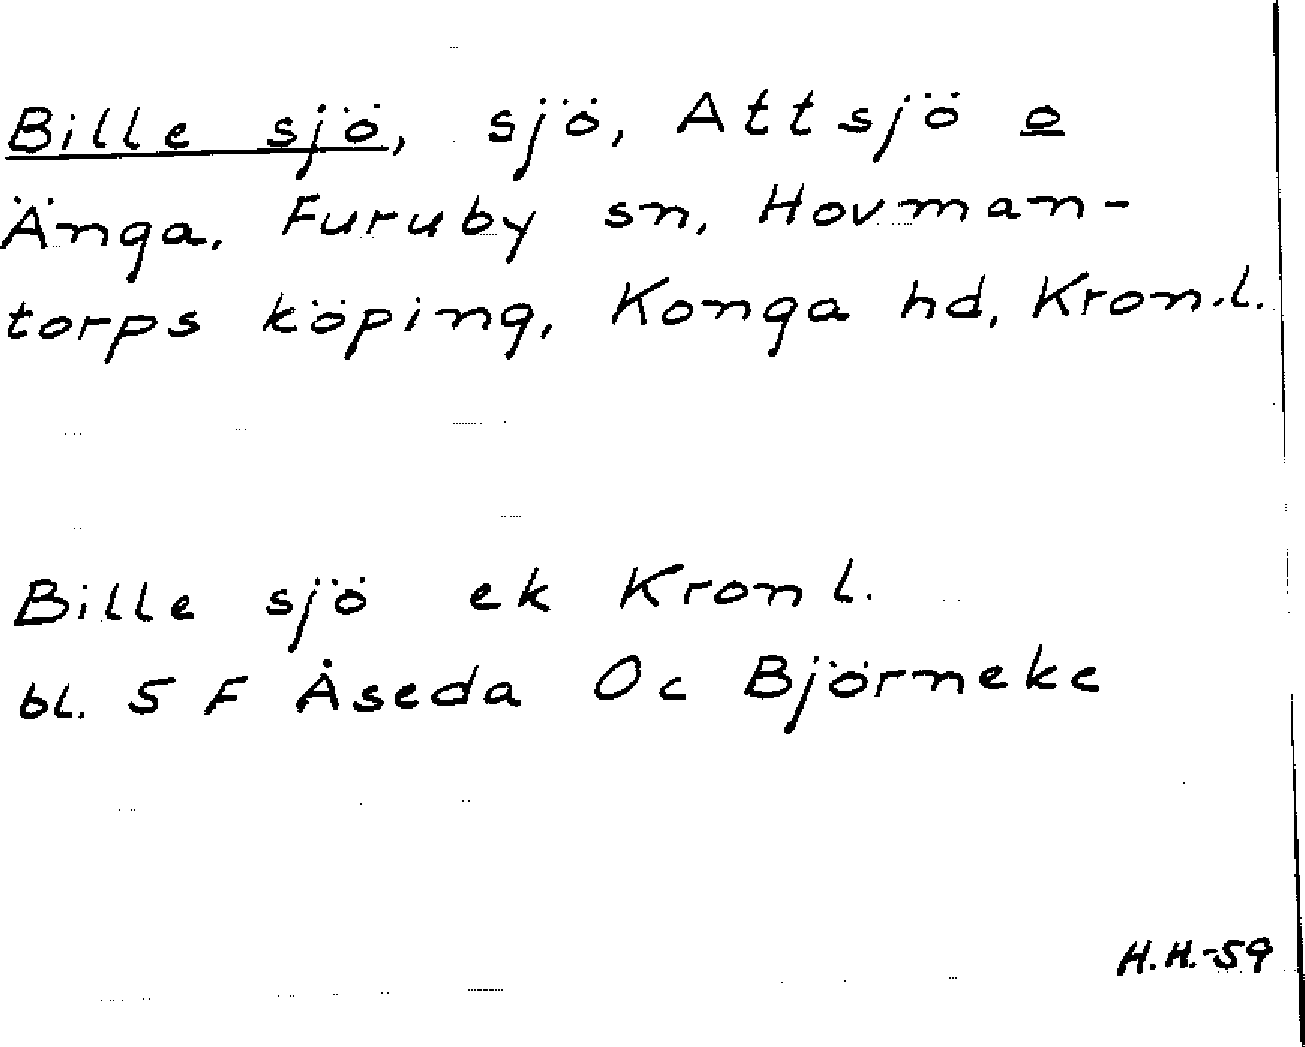 Bille sjö, sjö, Attsjö o
Änga, Furuby sn, Hovman-
torps köping, Konga hd, Kron.l.
Bille sjö ek Kronl.
bl. 5 F Åseda Oc Björneke
H.H.-59